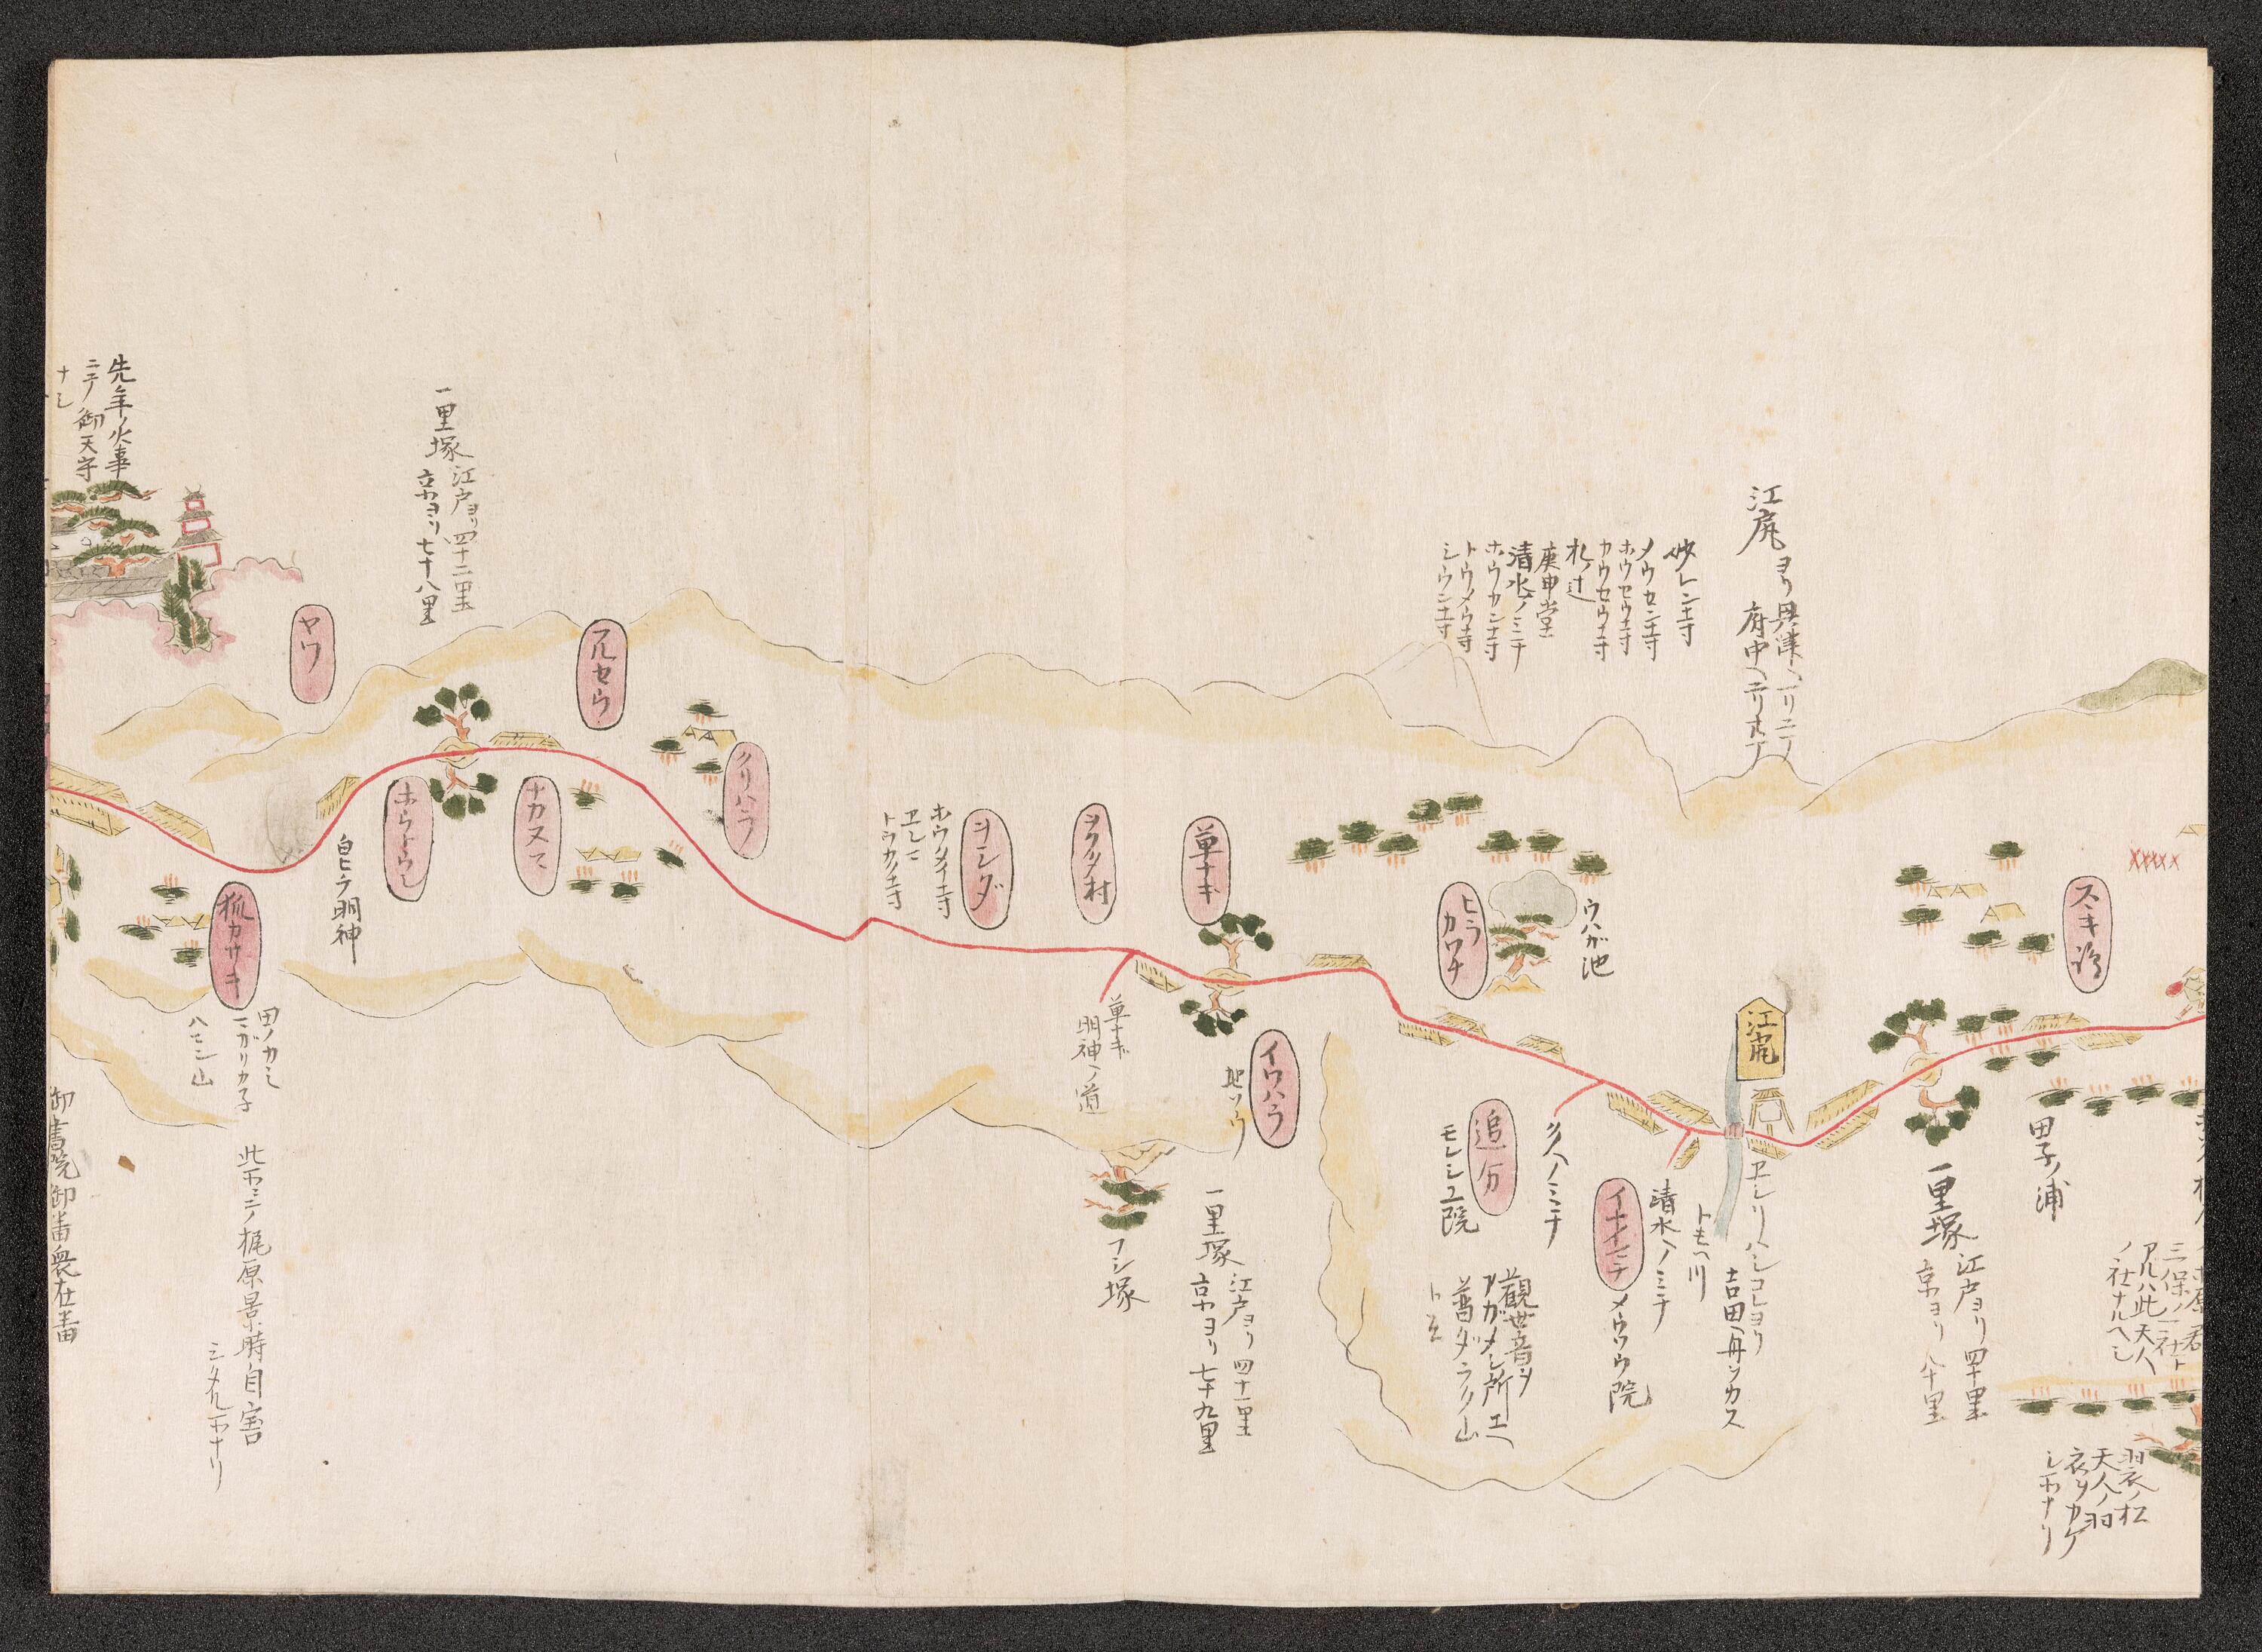 江尻ヨリ
興津ヘ一リ二丁
府中ヘ二リ
妙レン寺
メウセン寺
ホウセウ寺
カウセウ寺
札辻
庚申堂
清水ノミチ
ホウカン寺
トウメウ寺
シウン寺
江尻
田子ノ浦
一里塚
江戸ヨリ四十里
京ヨリ八十里
三保ノ二社ト
アルハ此天人
ノ社ナルヘシ
羽衣ノ松
天人ノ羽
衣ヲカケ
シ所ナリ
ヱシリハシコレヨリ
吉田ヘ舟ツカス
トモヘ川
清水ヘノミチ
メウワウ院
久ヘノミチ
追分
観世音ヲ
アガメシ所エヘ
普ダラク山
ト云
ウハガ池
ヒラ
カワチ
イワハラ
地ソウ
一里塚
江戸ヨリ四十一里
京ヨリ七十九里
草ナキ
草ナギ
明神ヘノ道
フシ塚
ヲシダ
トウカク寺
クリハラ
ナカヌマ
一里塚
江戸ヨリ四十二里
京ヨリ七十八里
白ヒケ明神
ヤワ
狐カサキ
田ノカミ
ハセシ山
此所ニテ梶原景時自害
シタル所ナリ
先年ノ火事
ニテ御天守
ナシ
御書院御番衆在番